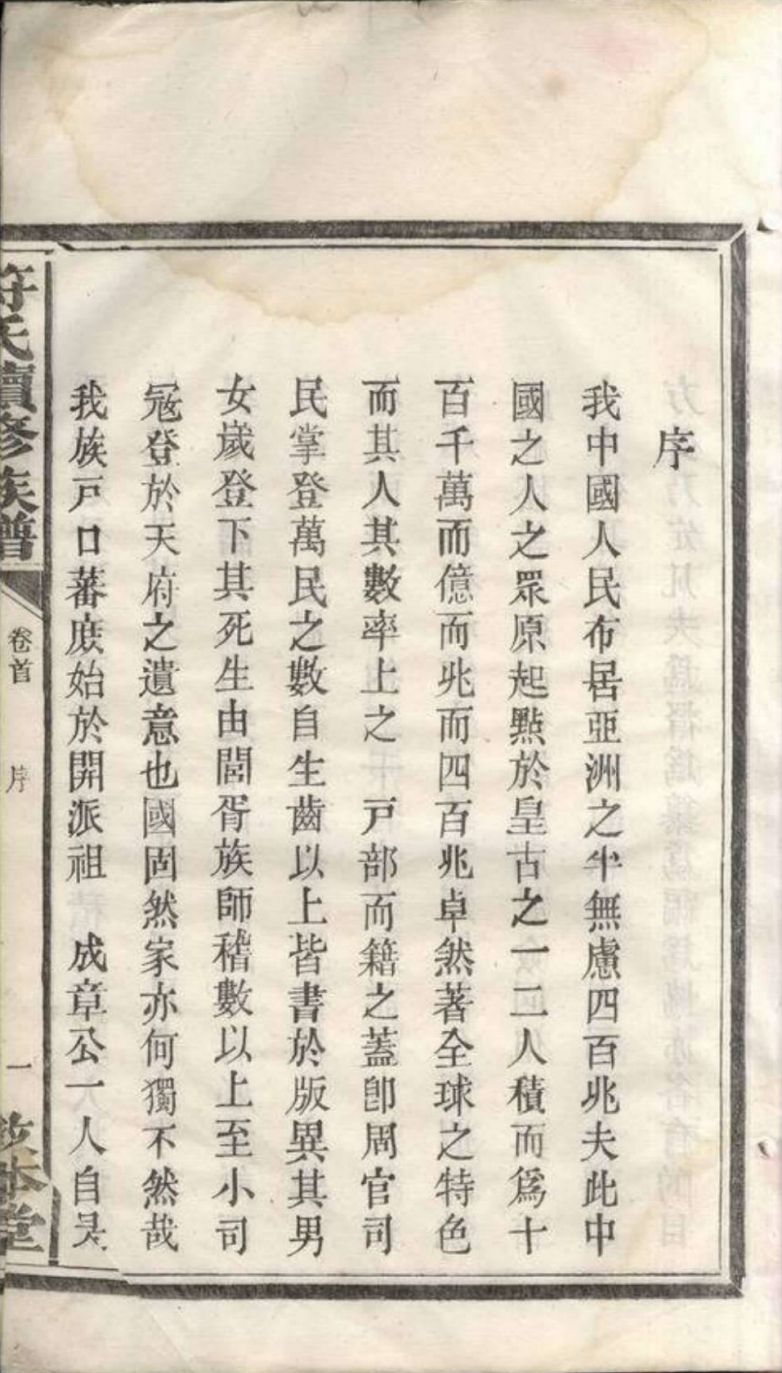 序
我中國人民布居亞洲之半無慮四百兆夫此中
國之人之眾原起點於皇古之一二人積而爲十
百千萬而億而兆而四百兆卓然著全球之特色
而其人其數率上之　戸部而籍之蓋卽周官司
民掌登萬民之數自生齒以上皆書於版異其男
女歲登下其死生由閭胥族師稽數以上至小司
冦登於天府之遺意也國固然家亦何獨不然哉
我族戸口蕃庶始於開派祖　成章公一人自是
符氏續修族譜
卷首
序
一
敦本堂